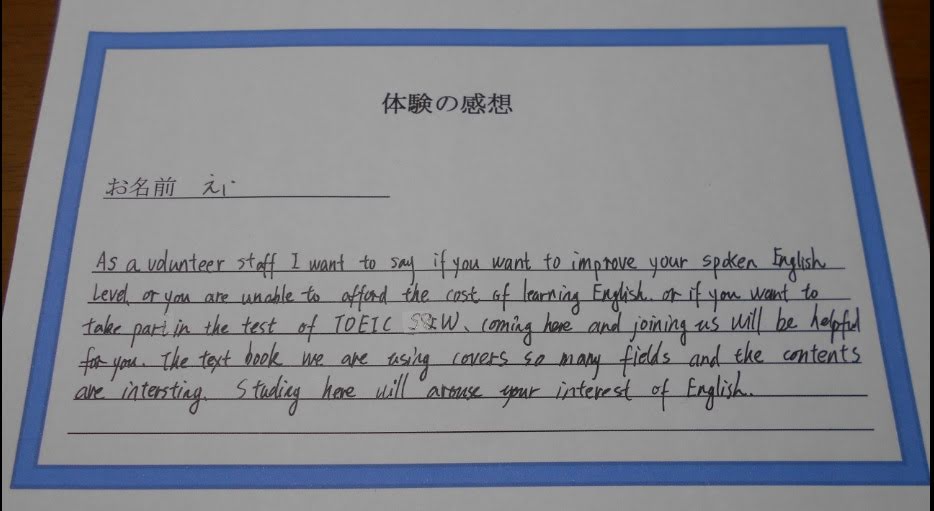 体験の感想
お名前 えい
As a volunteer staff I want to say if you want to improve your spoken English
Level, or you are unable to afford the cost of learning English. or if you want to
take part in the test of TOEIC S&W、coming here and joining us will be helpful
for you. The text book we are using covers so many fields and the contents
are intersting. Studing here will arouse your interest of English.